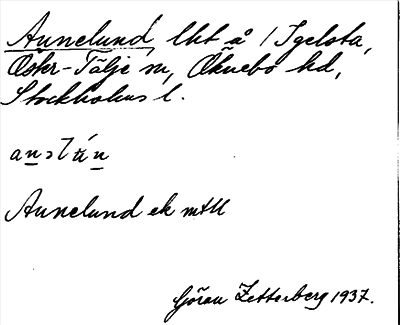 Annelund, lht å 1 Igelsta,
Öster-Tälje sn, Öknebo hd,
Stockholms l.
Annelund ek mtll
Göran Zetterberg 1937.